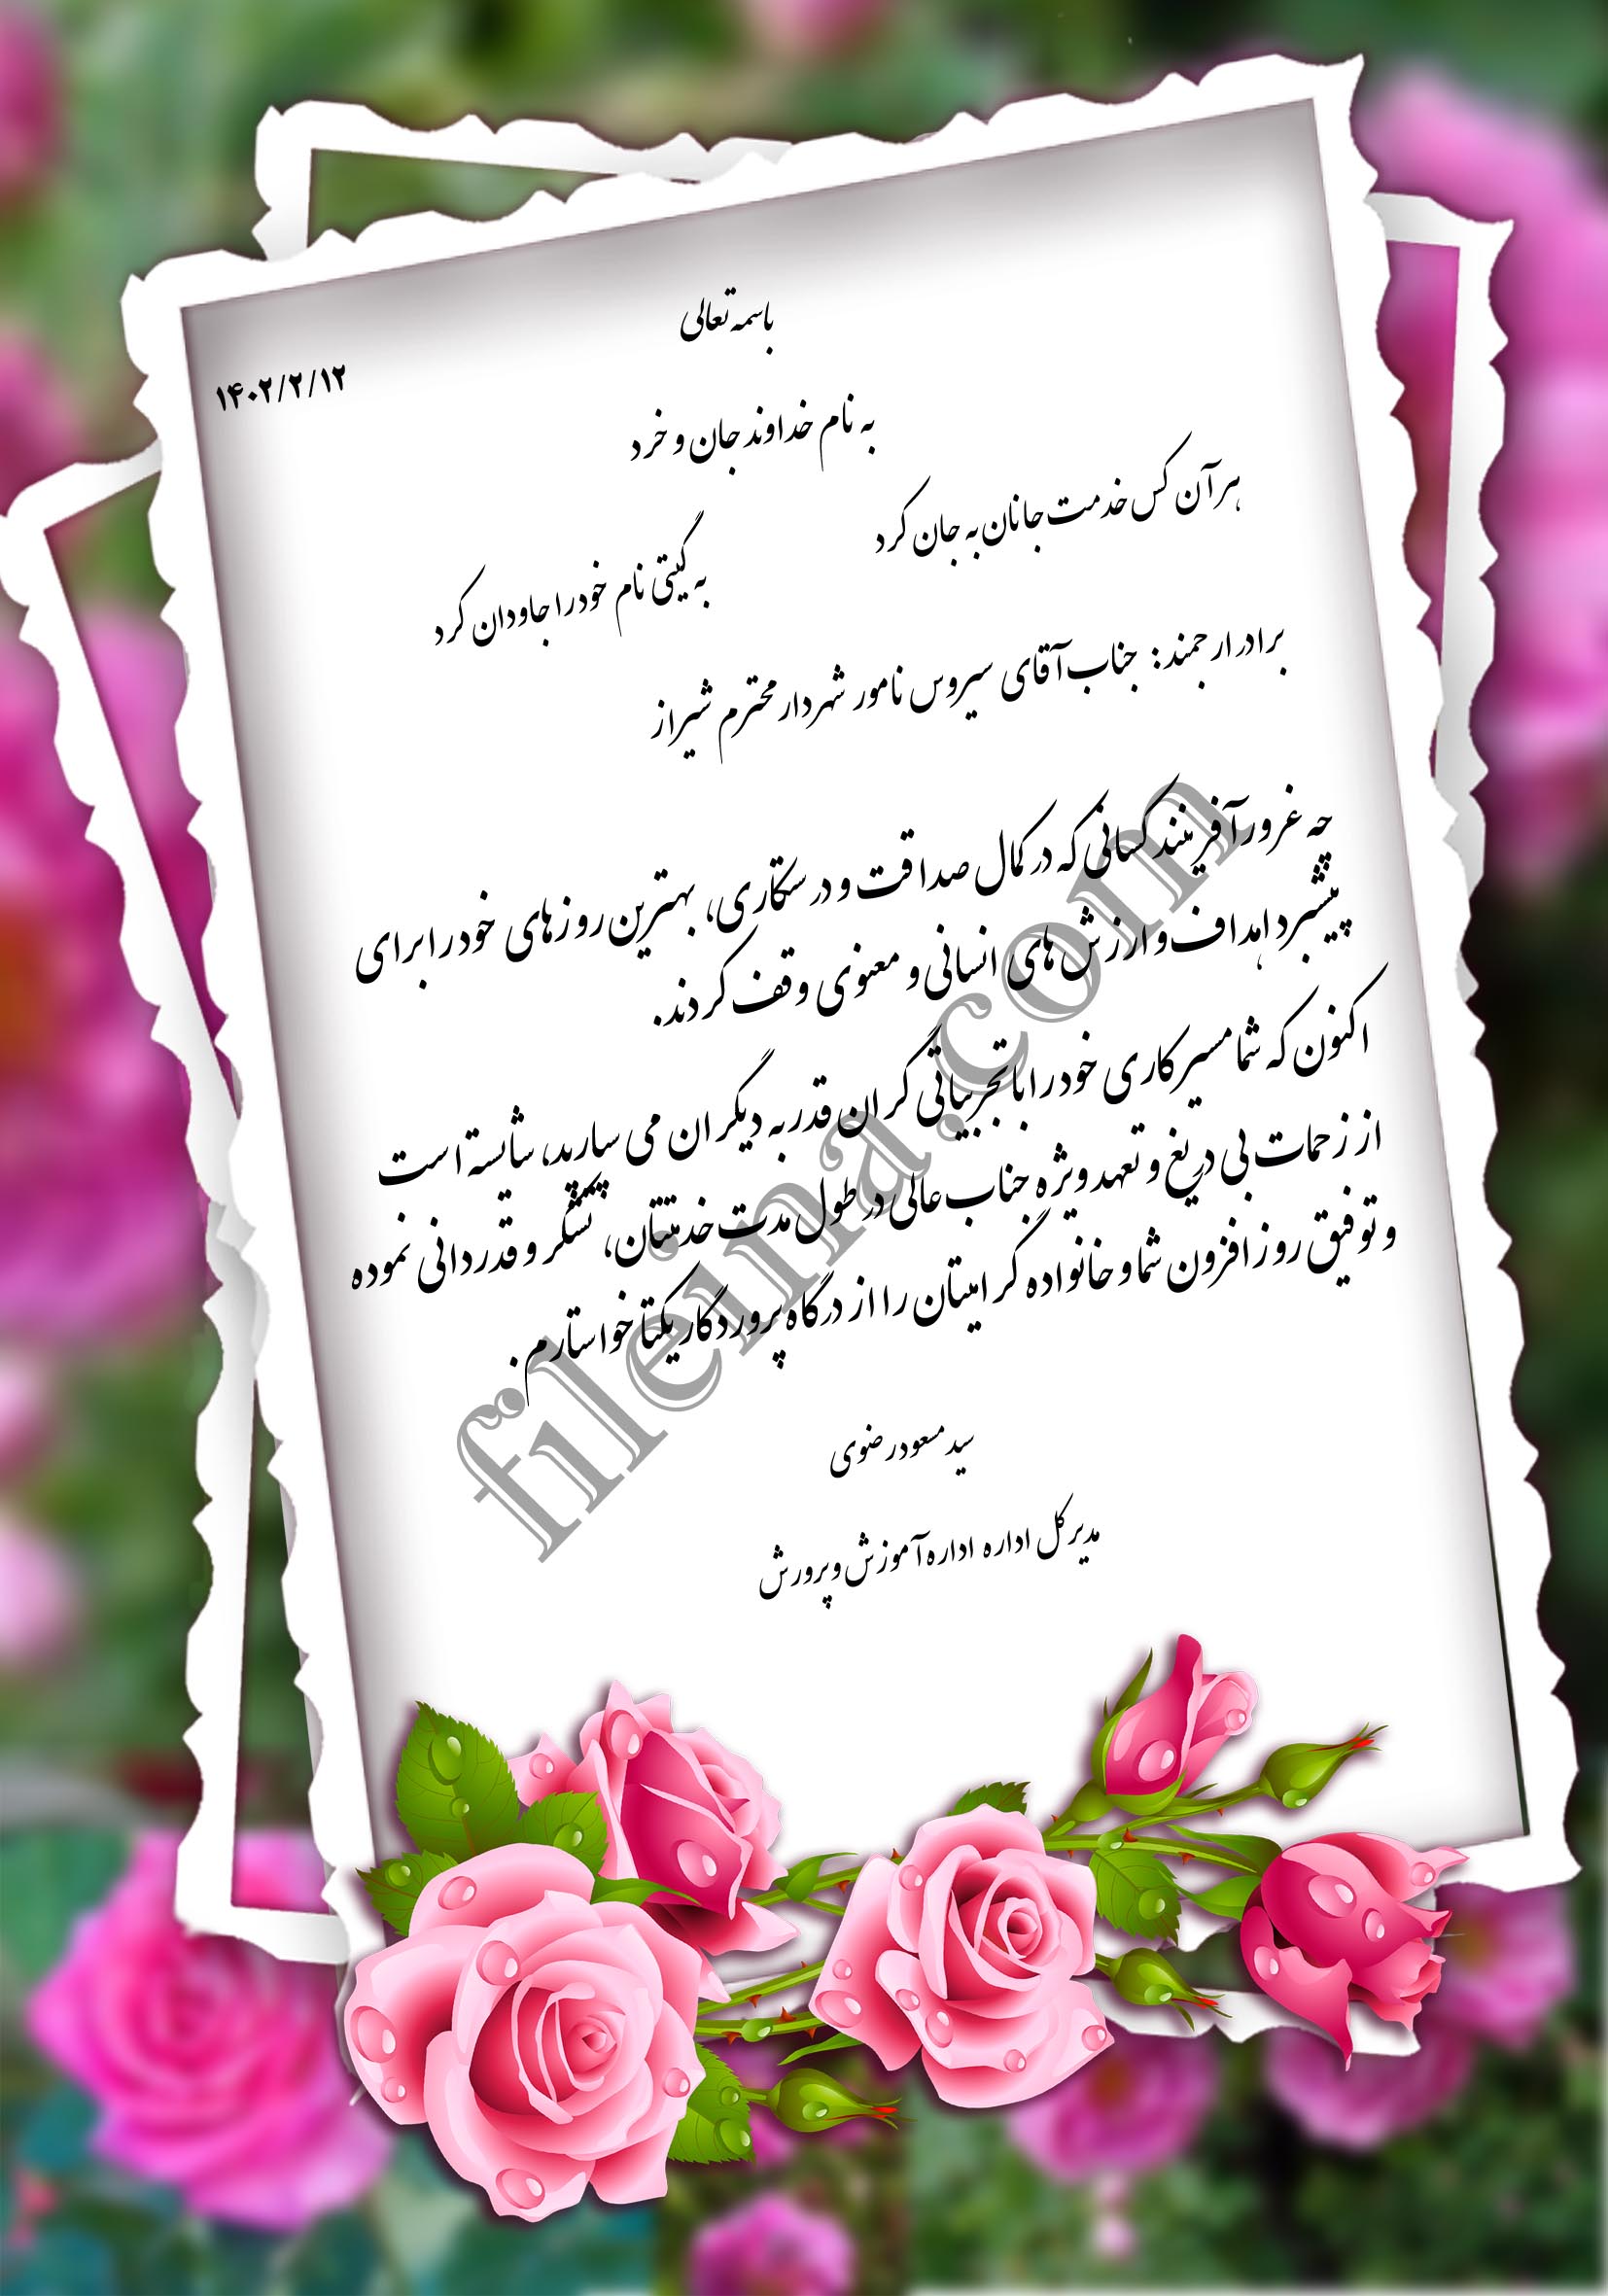 باسمه تعالی
۱۴۰۲/۲/۱۲
به نام خداوند جان و خرد
هر آن کس خدمت جانان به جان کرد
به گیتی نام خود را جاودان کرد
برادر ارجمند: جناب آقای سیروس نامور شهردار محترم شیراز
چه غرورآفرینند کسانی که در کمال صداقت و درستکاری، بهترین روزهای خود را برای
پیشبرد اهداف و ارزش های انسانی و معنوی وقف کردند.
اکنون که شما مسیر کاری خود را با تجربیاتی گران قدر به دیگران می سپارید، شایسته است
از زحمات بی دریغ و تعهد ویژه جناب عالی در طول مدت خدمتتان، تشکر و قدردانی نموده
و توفیق روز افزون شما و خانواده گرامیتان را از درگاه پروردگار یکتا خواستارم.
سید مسعود رضوی
مدیر کل اداره اداره آموزش و پرورش
fileina.com